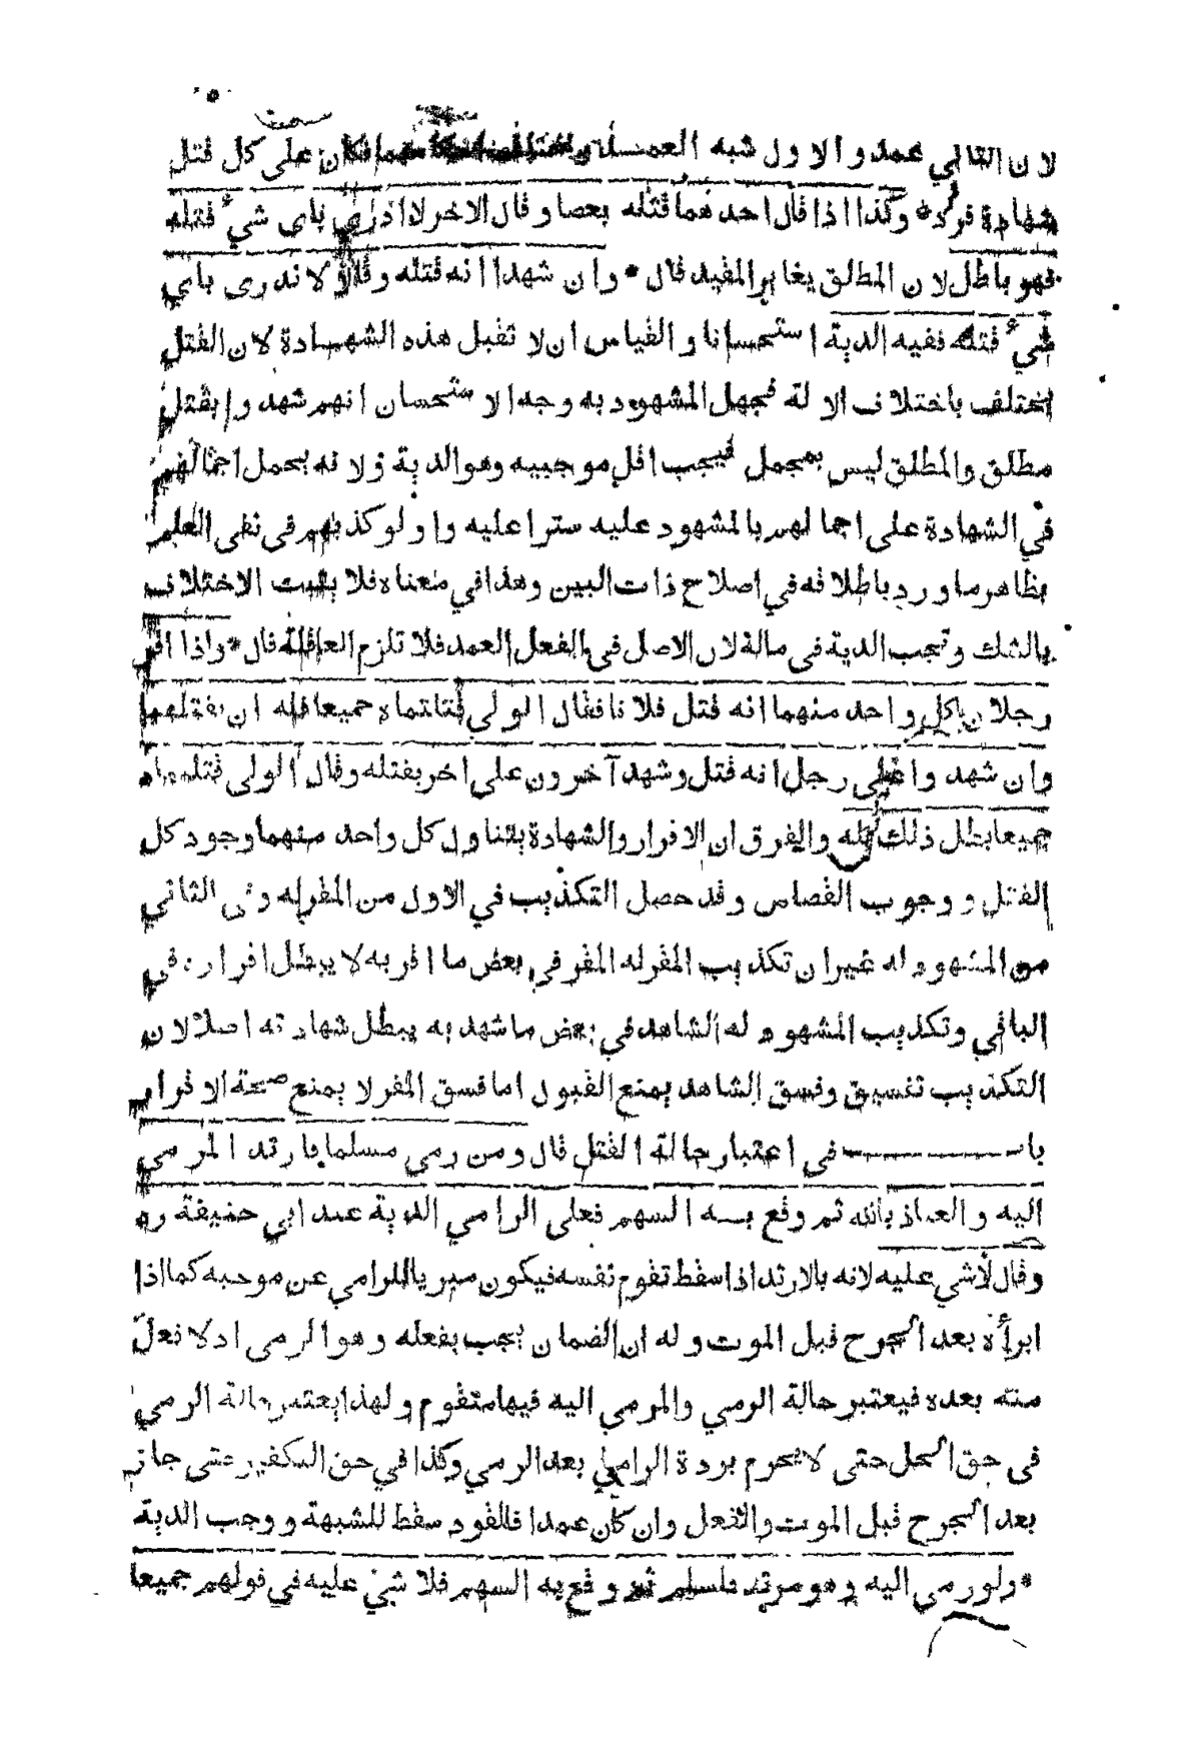 لان الثاني عمد والاول شبه العمد فكان على كل قتل
شهادة فرد * وكذا اذا قال احدهما قتله بعصا وقال الاخر لا ادري باي شيء قتله
فهو باطل لان المطلق يغاير المقيد قال * وان شهدا انه قتله وقالا لا ندرى باي
شيء قتله ففيه الدية استحسانا والقياس ان لا تقبل هذه الشهادة لان القتل
يختلف باختلاف الالة فجهل المشهود به وجه الاستحسان انهم شهدوا بقتل
مطلق والمطلق ليس بمجمل فيجب اقل موجبيه وهو الدية ولانه يحمل اجمالهم
في الشهادة على اجمالهم بالمشهود عليه سترا عليه واولوا كذبهم في نفى العلم
بظاهر ما ورد باطلاقه في اصلاح ذات البين وهذا في معناه فلا يثبت الاختلاف
بالشك وتجب الدية في ماله لان الاصل في الفعل العمد فلا تلزم العاقلة قال * واذا اقر
رجلان كل واحد منهما انه قتل فلانا فقال الولي قتلتماه جميعا فله ان يقتلهما
وان شهدوا على رجل انه قتل وشهد آخرون على اخر بقتله وقال الولى قتلتماه
جميعا بطل ذلك كله والفرق ان الاقرار والشهادة يتناول كل واحد منهما وجود كل
القتل و وجوب القصاص وقد حصل التكذيب في الاول من المقرله وفى الثاني
من المشهود له غير ان تكذيب المقرله المقر في بعض ما اقر به لا يبطل اقراره في
الباقي وتكذيب المشهود له الشاهد في بعض ما شهد به يبطل شهادته اصلا لان
التكذيب تفسيق وفسق الشاهد يمنع القبول اما فسق المقر لا يمنع صحة الاقرار
باب في اعتبار حالة القتل قال ومن رمى مسلما فارتد المرمي
اليه والعياذ بالله ثم وقع به السهم فعلى الرامي الدية عند ابي حنيفة ره
وقالا لا شيء عليه لانه بالارتداد اسقط تقوم نفسه فيكون مبريا للرامي عن موجبه كما اذا
ابرأه بعد الجرح قبل الموت وله ان الضمان يجب بفعله وهو الرمى اذ لا فعل
منه بعده فيعتبر حالة الرمي والمرمي اليه فيها متقوم ولهذا يعتبر حالة الرمي
في حق الحل حتى لا يحرم بردة الرامي بعد الرمي وكذا في حق التكفير حتى جاز
بعد الجرح قبل الموت والفعل وان كان عمدا فالقود سقط للشبهة و وجب الدية
* ولو رمى اليه وهو مرتد فاسلم ثم وقع به السهم فلا شيء عليه في قولهم جميعا